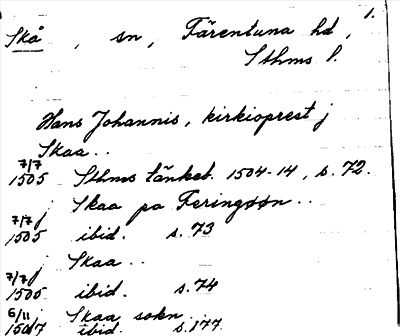 1.
Skå, sn, Färentuna hd,
Sthms l.
Hans Johannis, kirkioprest j
Skaa..
7/7
1505 Sthms tänkeb. 1504-14, s. 72.
j Skaa pa Feringøøn..
7/7
1505 ibid. s. 73
j Skaa..
7/7
1505 ibid. s. 74
j Skaa sokn
6/11
1507 ibid. s. 177